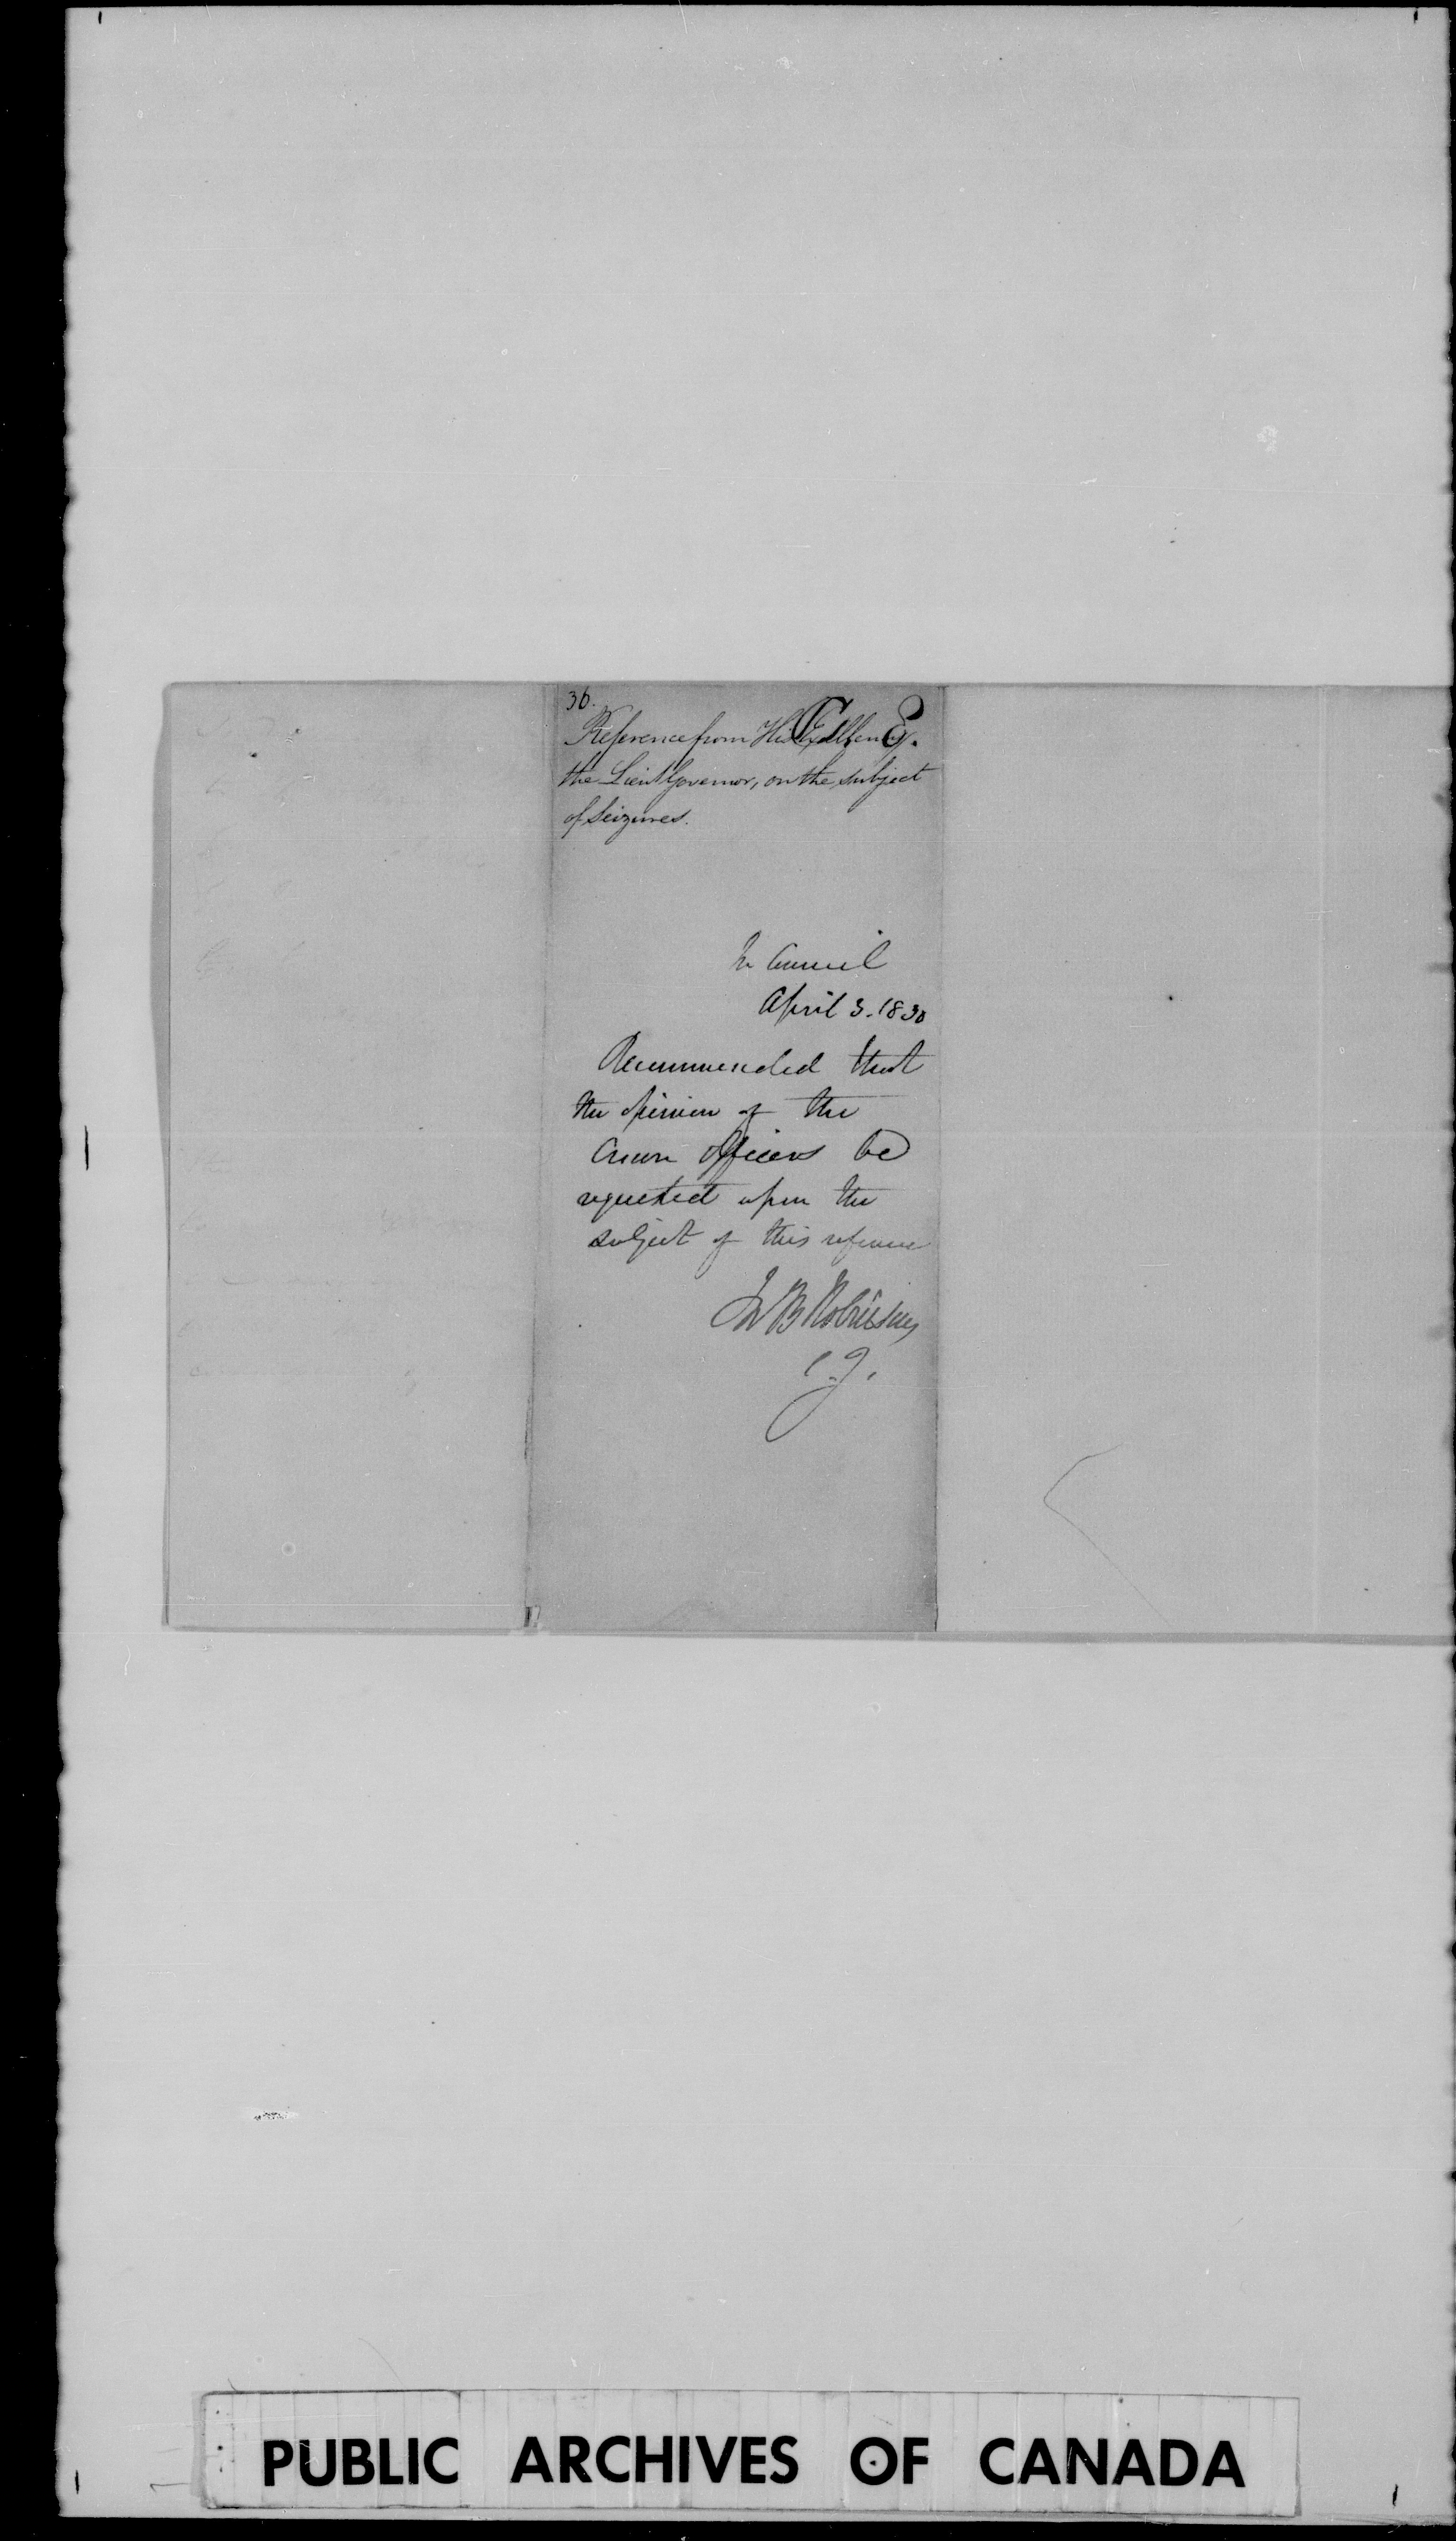 36.
Reference from His Excellency
the Lieut Governor, on the subject
of Seizures.
In Council
April 3. 1830
Recommended that
the opinion of the
Crown Officers be
requested upon the
subject of this reference
Jn B Robinson
C.J.
PUBLIC ARCHIVES OF CANADA